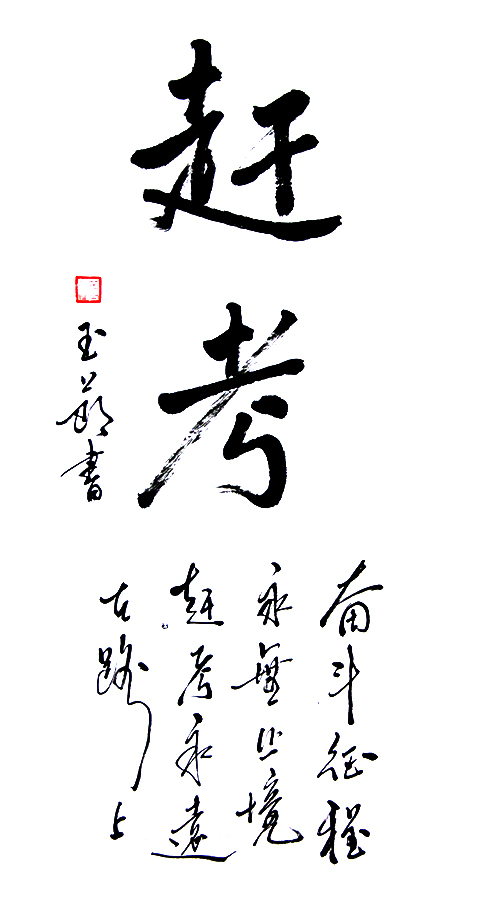 赶
考
奋斗征程
永無止境
赶考永遠
在路上
玉莭書